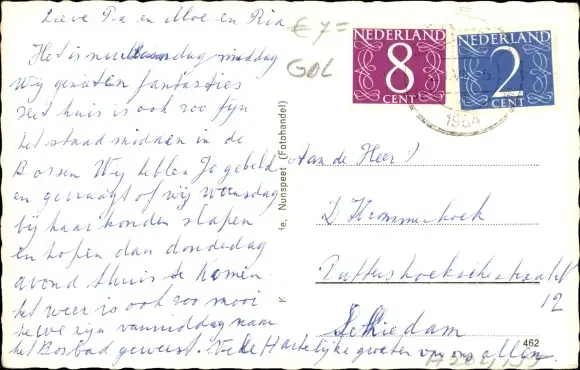 Lieve Pa en Moe en Ria
Het is nu maandag middag
Wij genieten fantasties
Het huis is ook zoo fijn
het staad midden in de
Bossen Wij hebben Jo gebeld
en gevraagt of wij Woensdag
bij haar konden slapen
en hopen dan donderdag
avond thuis te komen
het weer is ook zoo mooi
en we zijn vanmiddag naar
het Bosbad geweest. Vele Hartelijke groeten van ons allen
€ 7=
GOL
NEDERLAND
8
CENT
NEDERLAND
2
CENT
1964
Nunspeet (Fotohandel)
Aan de Heer
D Krommenhoek
Puttershoeksestraat
12
Schiedam
462